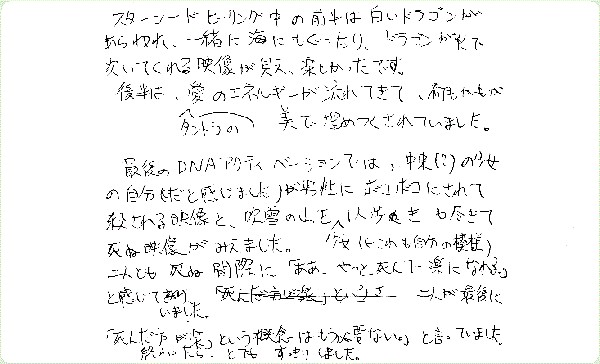 スターシードヒーリング中の前半は白いドラゴンが
あらわれ、一緒に海にもぐったり、ドラゴンが火で
吹いてくれる映像が見え、楽しかったです。
後半は、愛のエネルギーが流れてきて、何もかもが
タントラの 美で埋めつくされていました。
最後のDNAアクティベーションでは、中東(?)の少女
の自分(だと感じました)が男性にボコボコにされて
殺される映像と、吹雪の山を1人歩き力尽きて
死ぬ映像がみえました。(少女 これも自分の模様)
二人とも死ぬ間際に「ああ、やっと死んで楽になれる」
と感じていました。 二人が最後に
「死んだ方が楽」という概念はもう必要ない。」と言っていました。
終わったら、とてもすっきりしました。